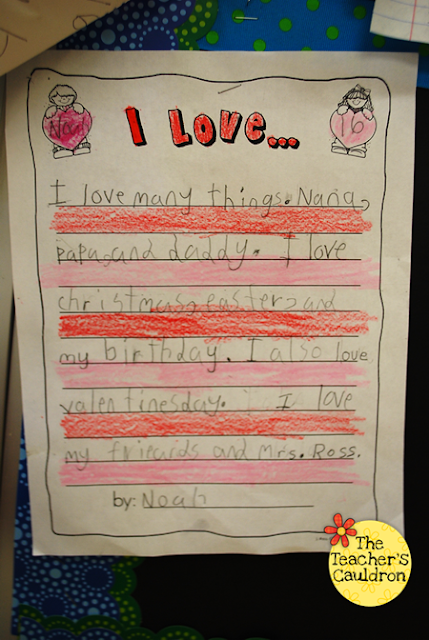 Noah
16
I LOVE...
I love many things. Nana,
papa, and daddy. I love
christmas, easter, and
my birthday. I also love
valentinesday. I love
my frieards and Mrs. Ross.
by: Noah
The
Teacher's
Cauldron